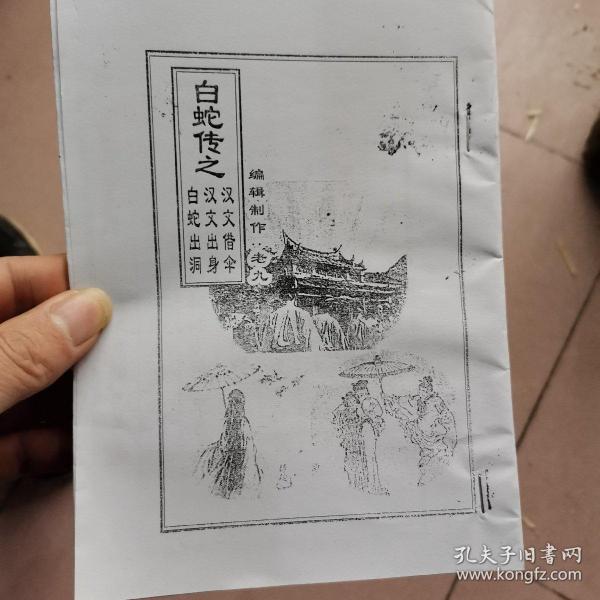 白蛇传之
汉文借伞
汉文出身
白蛇出洞
编辑制作：老九
孔夫子旧书网
www.kongfz.com